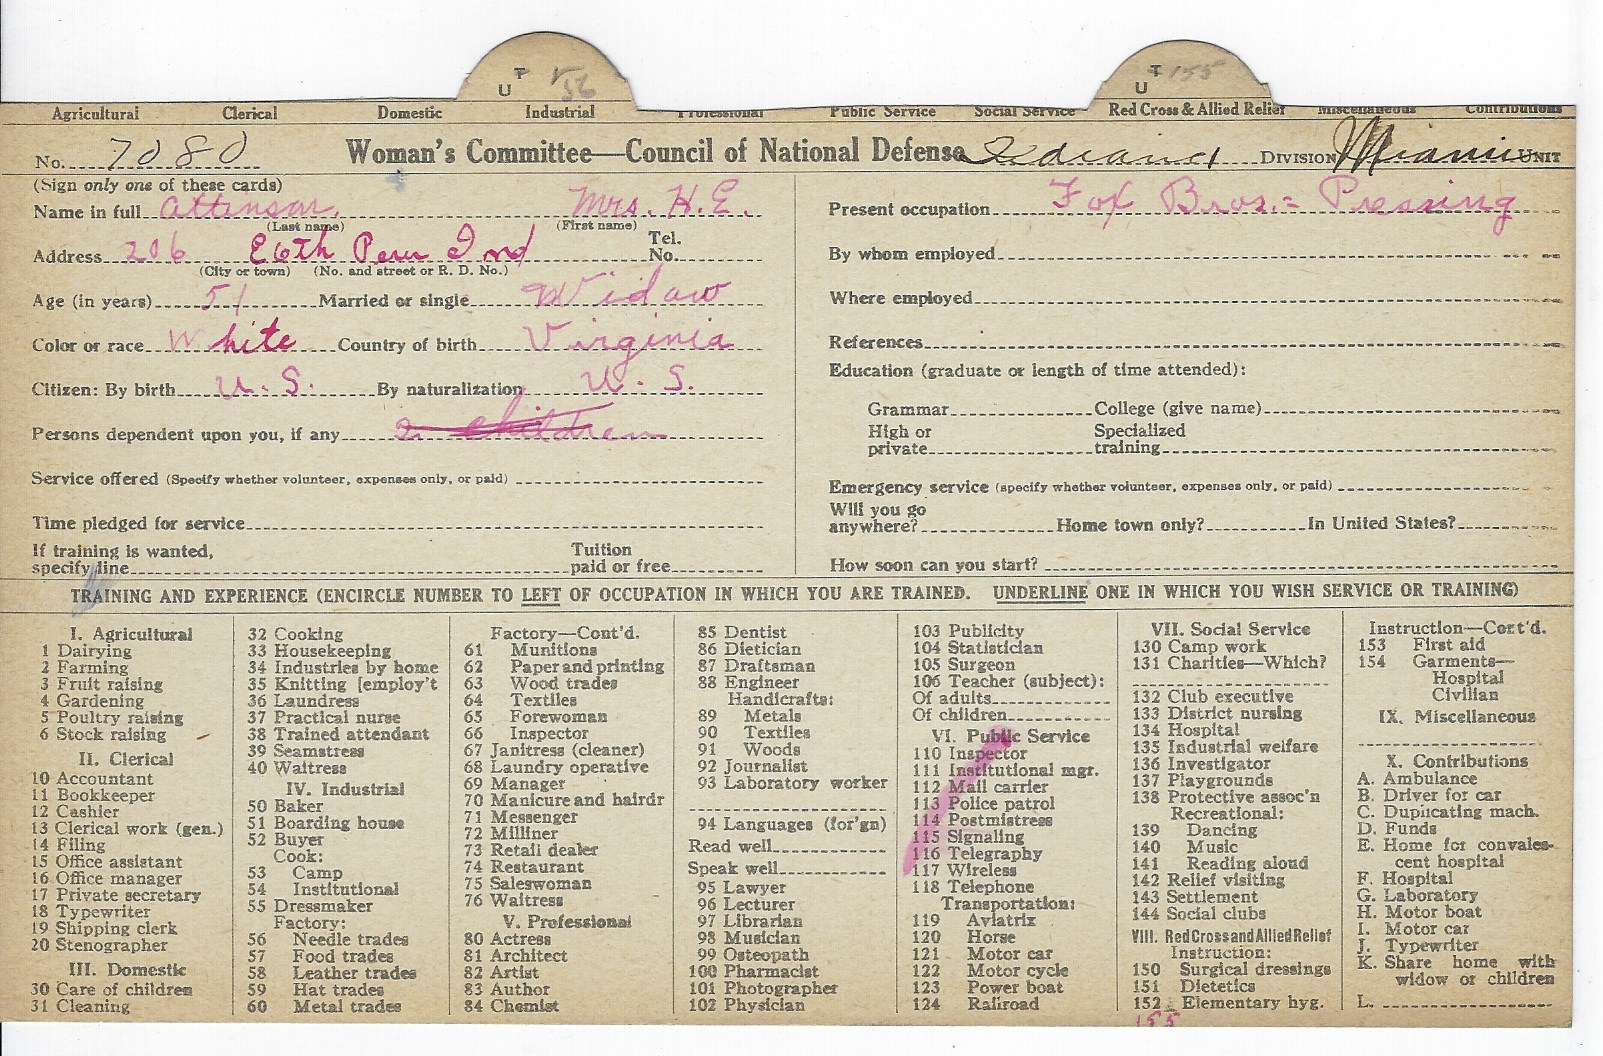 U T 56
U T 155
Agricultural Clerical Domestic Industrial Professional Public Service Social Service Red Cross & Allied Relief Miscellaneous Contributions
No. 7080 Woman's Committee—Council of National Defense Indiana DIVISION Miami UNIT
(Sign only one of these cards)
Name in full Attinson, Mrs. H. E.
(Last name) (First name)
Address 206 E 6th Peru Ind Tel. No.
(City or town) (No. and street or R. D. No.)
Age (in years) 51 Married or single Widow
Color or race White Country of birth Virginia
Citizen: By birth U. S. By naturalization U. S.
Persons dependent upon you, if any 2 children
Service offered (Specify whether volunteer, expenses only, or paid)
Time pledged for service
If training is wanted, specify line Tuition paid or free
Present occupation Fox Bros. = Pressing
By whom employed
Where employed
References
Education (graduate or length of time attended):
Grammar College (give name)
High or private Specialized training
Emergency service (specify whether volunteer, expenses only, or paid)
Will you go anywhere? Home town only? In United States?
How soon can you start?
TRAINING AND EXPERIENCE (ENCIRCLE NUMBER TO LEFT OF OCCUPATION IN WHICH YOU ARE TRAINED. UNDERLINE ONE IN WHICH YOU WISH SERVICE OR TRAINING)
I. Agricultural
1 Dairying
2 Farming
3 Fruit raising
4 Gardening
5 Poultry raising
6 Stock raising
II. Clerical
10 Accountant
11 Bookkeeper
12 Cashier
13 Clerical work (gen.)
14 Filing
15 Office assistant
16 Office manager
17 Private secretary
18 Typewriter
19 Shipping clerk
20 Stenographer
III. Domestic
30 Care of children
31 Cleaning
32 Cooking
33 Housekeeping
34 Industries by home
35 Knitting [employ't
36 Laundress
37 Practical nurse
38 Trained attendant
39 Seamstress
40 Waitress
IV. Industrial
50 Baker
51 Boarding house
52 Buyer
Cook:
53 Camp
54 Institutional
55 Dressmaker
Factory:
56 Needle trades
57 Food trades
58 Leather trades
59 Hat trades
60 Metal trades
Factory—Cont'd.
61 Munitions
62 Paper and printing
63 Wood trades
64 Textiles
65 Forewoman
66 Inspector
67 Janitress (cleaner)
68 Laundry operative
69 Manager
70 Manicure and hairdr
71 Messenger
72 Milliner
73 Retail dealer
74 Restaurant
75 Saleswoman
76 Waitress
V. Professional
80 Actress
81 Architect
82 Artist
83 Author
84 Chemist
85 Dentist
86 Dietician
87 Draftsman
88 Engineer
Handicrafts:
89 Metals
90 Textiles
91 Woods
92 Journalist
93 Laboratory worker
94 Languages (for'gn)
Read well
Speak well
95 Lawyer
96 Lecturer
97 Librarian
98 Musician
99 Osteopath
100 Pharmacist
101 Photographer
102 Physician
103 Publicity
104 Statistician
105 Surgeon
106 Teacher (subject):
Of adults
Of children
VI. Public Service
110 Inspector
111 Institutional mgr.
112 Mail carrier
113 Police patrol
114 Postmistress
115 Signaling
116 Telegraphy
117 Wireless
118 Telephone
Transportation:
119 Aviatrix
120 Horse
121 Motor car
122 Motor cycle
123 Power boat
124 Railroad
VII. Social Service
130 Camp work
131 Charities—Which?
132 Club executive
133 District nursing
134 Hospital
135 Industrial welfare
136 Investigator
137 Playgrounds
138 Protective assoc'n
Recreational:
139 Dancing
140 Music
141 Reading aloud
142 Relief visiting
143 Settlement
144 Social clubs
VIII. Red Cross and Allied Relief
Instruction:
150 Surgical dressings
151 Dietetics
152 Elementary hyg.
155
Instruction—Cont'd.
153 First aid
154 Garments—
Hospital
Civilian
IX. Miscellaneous
X. Contributions
A. Ambulance
B. Driver for car
C. Duplicating mach.
D. Funds
E. Home for convales-
cent hospital
F. Hospital
G. Laboratory
H. Motor boat
I. Motor car
J. Typewriter
K. Share home with
widow or children
L.